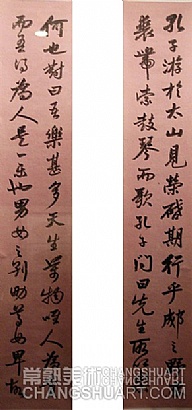 孔子游於太山見榮啓期行乎郕之野
裘帶索鼓琴而歌孔子問曰先生所以
何也對曰吾樂甚多天生萬物唯人為
而吾得為人是一樂也男女之別男尊女卑故
常熟美術
CHANGSHUART.COM